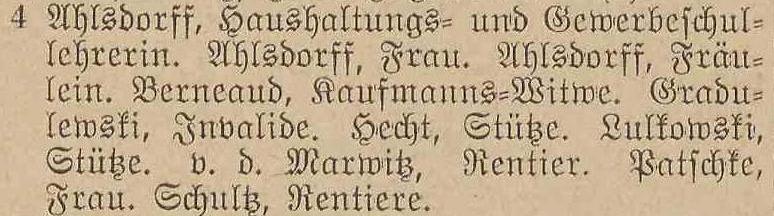 4 Ahlsdorff, Haushaltungs= und Gewerbeschul=
lehrerin. Ahlsdorff, Frau. Ahlsdorff, Fräu=
lein. Berneaud, Kaufmanns=Witwe. Gradu=
lewski, Invalide. Hecht, Stütze. Lulkowski,
Stütze. v. d. Marwitz, Rentier. Patschke,
Frau. Schultz, Rentiere.